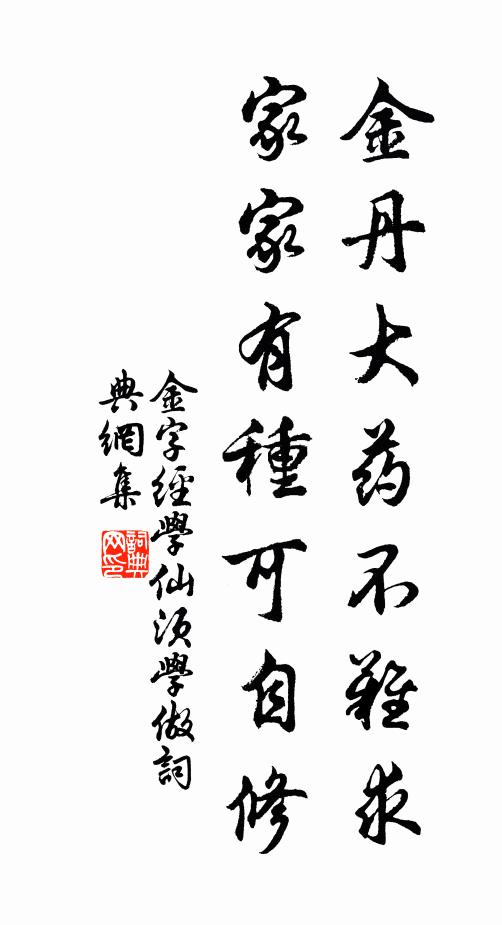 金丹大药不難求
家家有種可自修
金字經學仙須學做詞
典網集
詞典网印